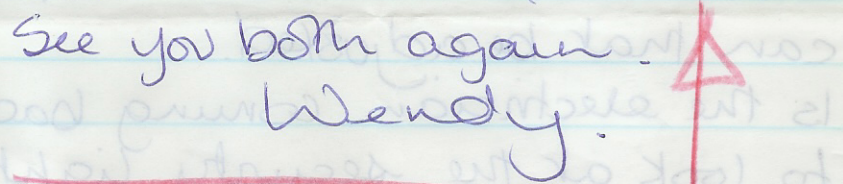 See you both again.
Wendy.